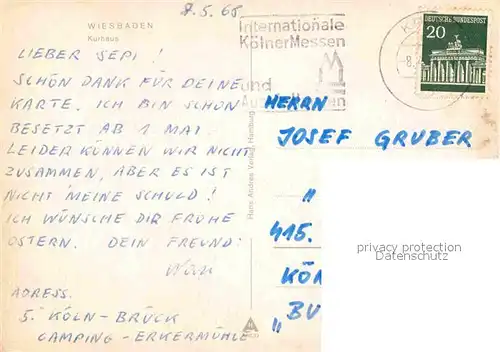 WIESBADEN
Kurhaus
LIEBER SEPI!
SCHÖN DANK FÜR DEINE
KARTE. ICH BIN SCHON
BESETZT AB 1 MAI.
LEIDER KÖNNEN WIR NICHT
ZUSAMMEN, ABER ES IST
NICHT MEINE SCHULD!
ICH WÜNSCHE DIR FROHE
OSTERN. DEIN FREUND:
ADRESS.
5. KÖLN-BRÜCK
CAMPING-ERKERMÜHLE
Hans Andres Verlag, Hamburg
Internationale
KölnerMessen
und
DEUTSCHE BUNDESPOST
20
HERRN
JOSEF GRUBER
"
415.
KÖ
"BU
privacy protection
Datenschutz